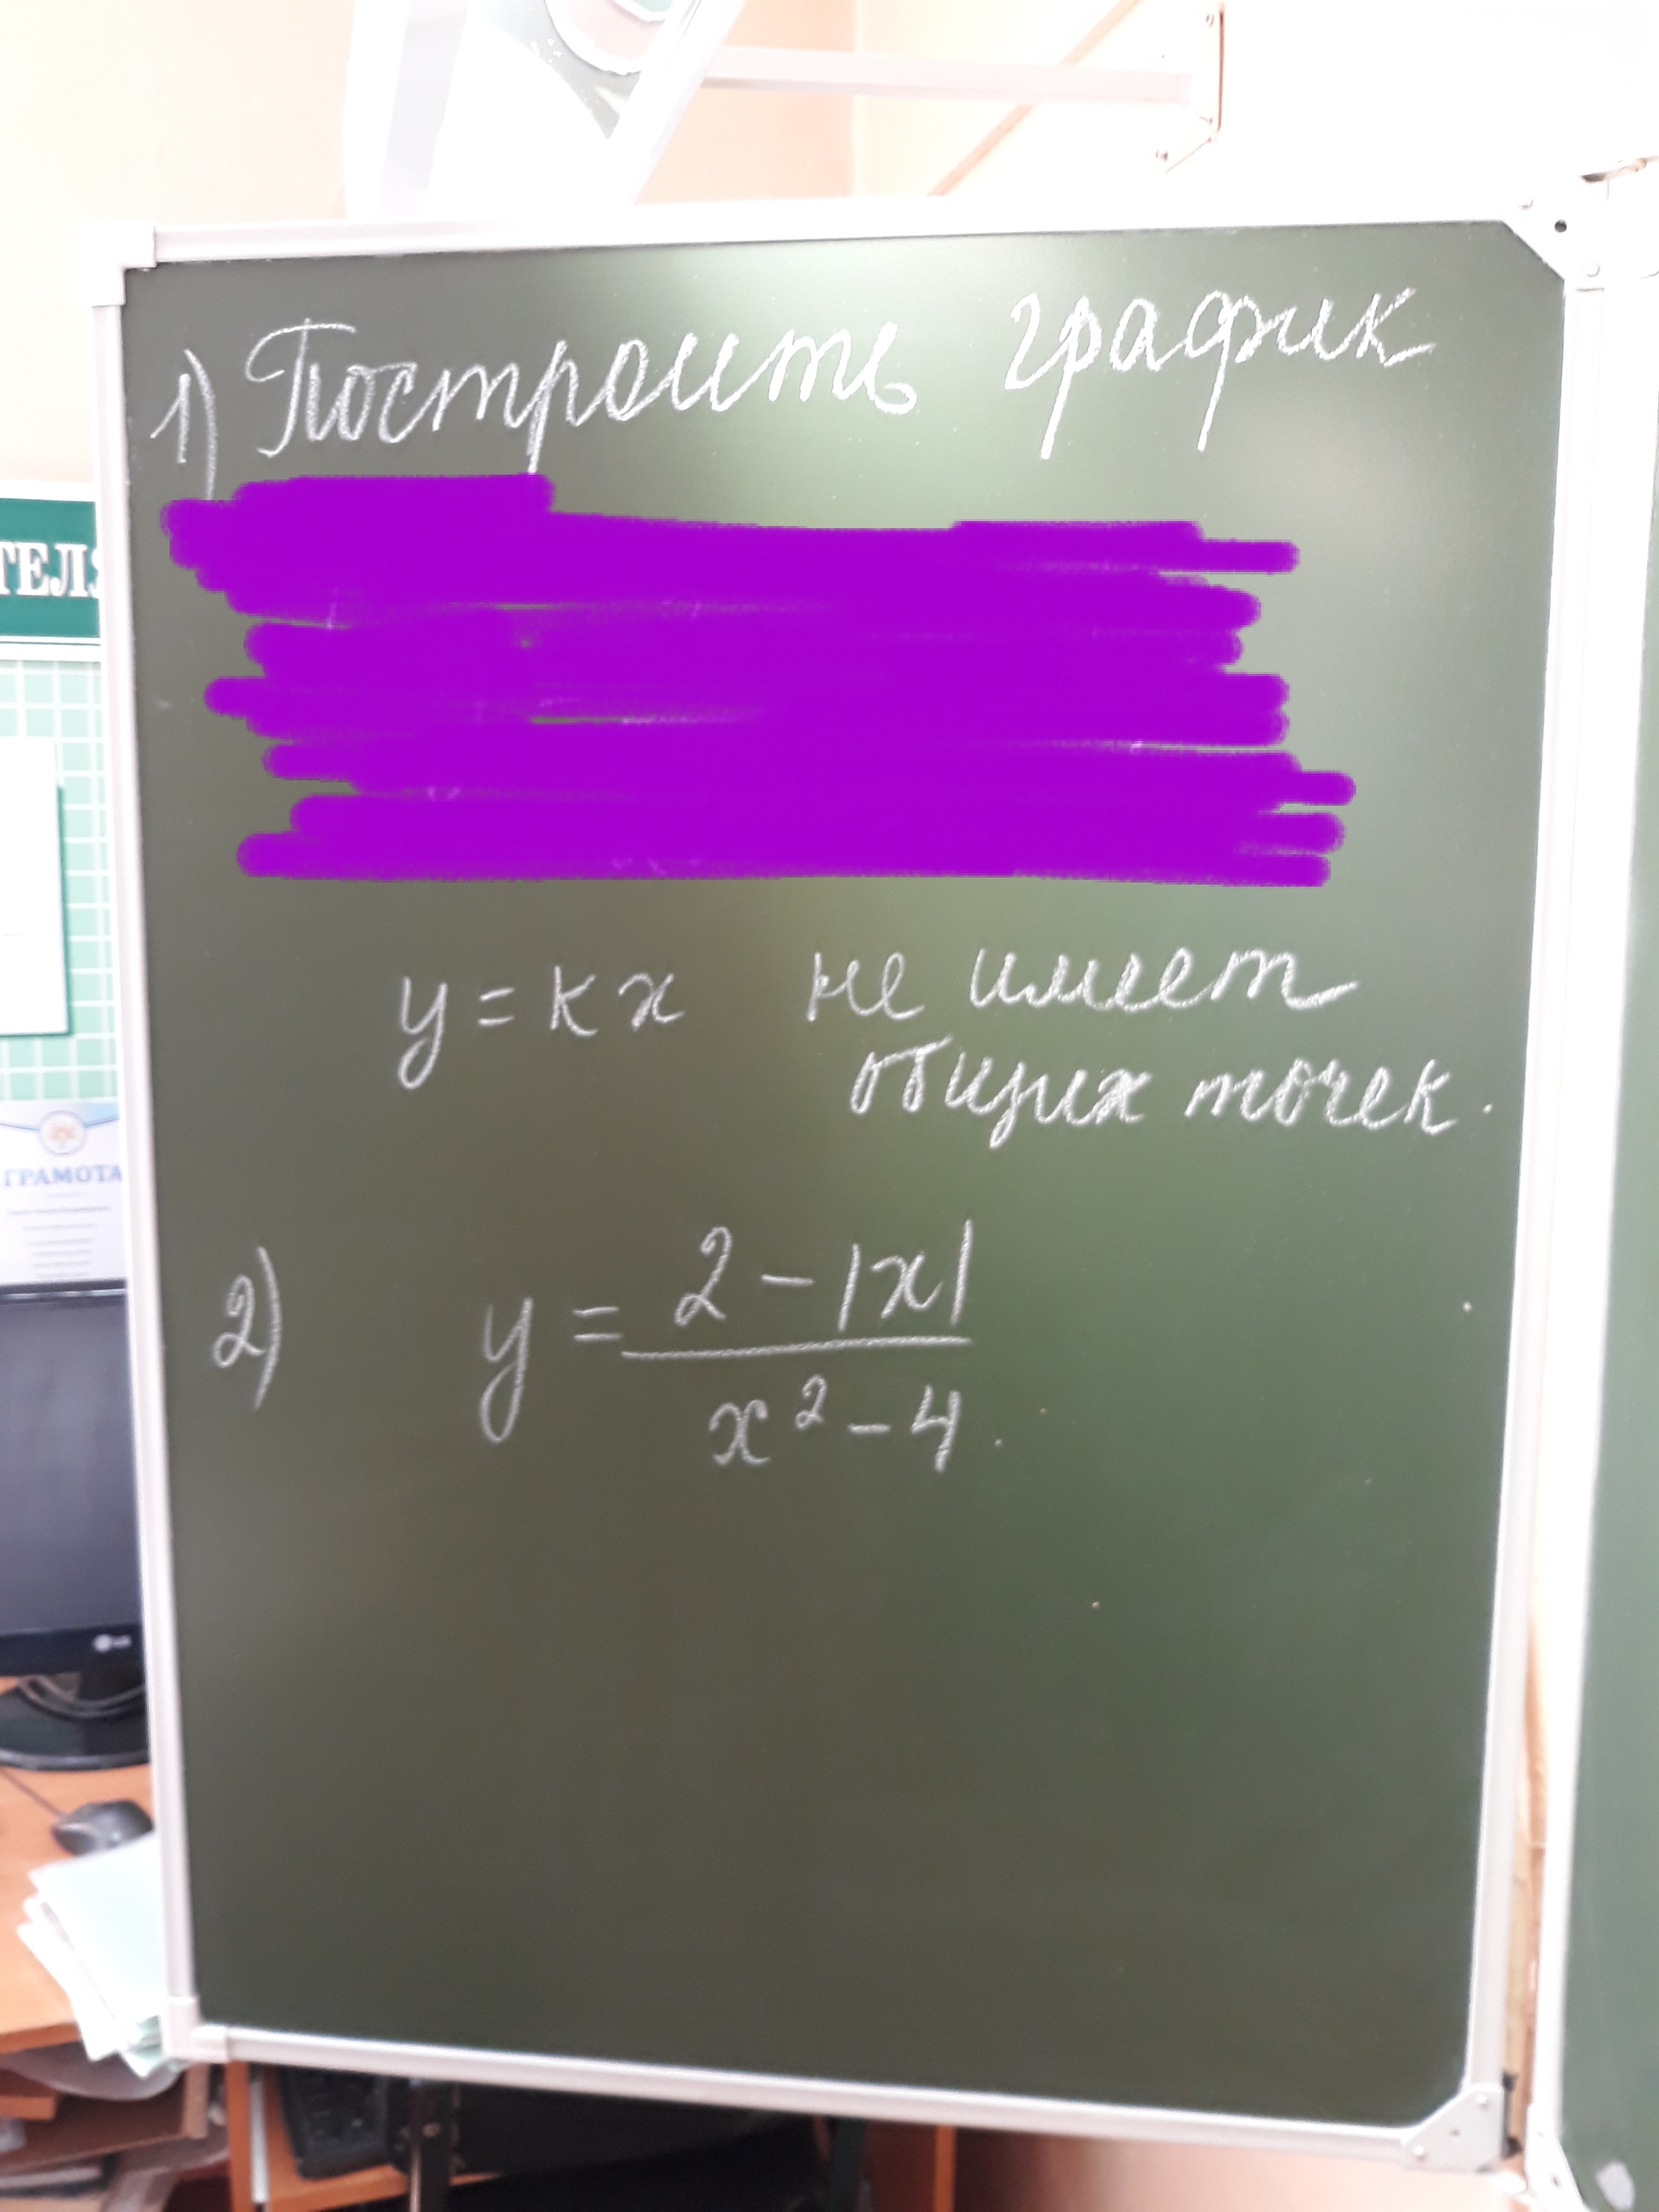 1) Построить график
y = kx не имеет
общих точек.
2) y = \frac{2 - |x|}{x^2 - 4}.
ТЕЛЯ
ГРАМОТА
LG